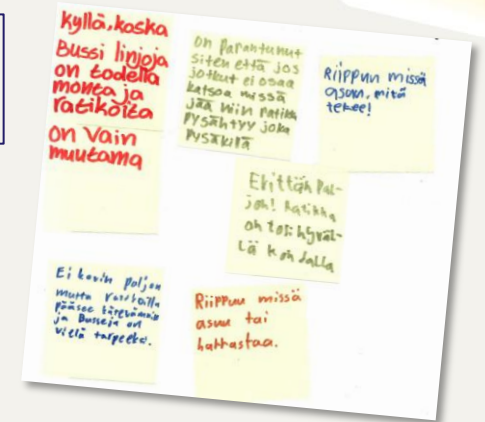 Kyllä, koska
Bussi linjoja
on todella
monta ja
ratikoita
on Vain
muutama
on parantunut
siten että jos
jotkut ei osaa
katsoa missä
jää niin ratikka
pysähtyy joka
pysäkillä
Riippuu missä
asuu, mitä
tekee!
Erittäin pal-
jon! Ratikka
on tosi hyväl-
lä kohdalla
Ei kovin paljon
mutta
pääsee
ja Busseja on
vielä tarpeeksi.
Riippuu missä
asuu tai
harrastaa.